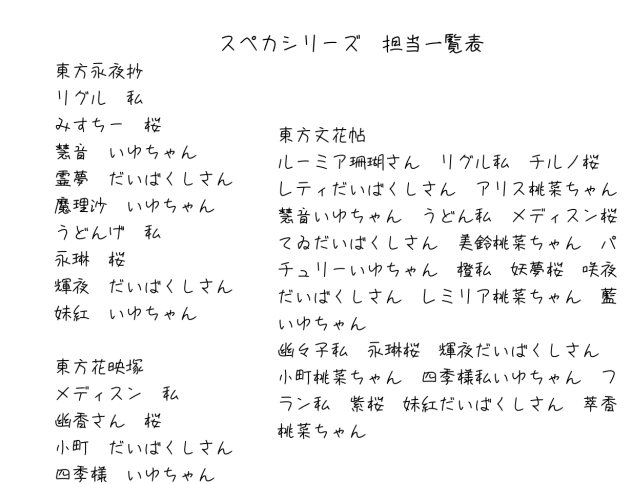 スペカシリーズ　担当一覧表
東方永夜抄
リグル　私
みすちー　桜
慧音　いゆちゃん
霊夢　だいばくしさん
魔理沙　いゆちゃん
うどんげ　私
永琳　桜
輝夜　だいばくしさん
妹紅　いゆちゃん
東方花映塚
メディスン　私
幽香さん　桜
小町　だいばくしさん
四季様　いゆちゃん
東方文花帖
ルーミア珊瑚さん　リグル私　チルノ桜
レティだいばくしさん　アリス桃菜ちゃん
慧音いゆちゃん　うどん私　メディスン桜
てゐだいばくしさん　美鈴桃菜ちゃん　パ
チュリーいゆちゃん　橙私　妖夢桜　咲夜
だいばくしさん　レミリア桃菜ちゃん　藍
いゆちゃん
幽々子私　永琳桜　輝夜だいばくしさん
小町桃菜ちゃん　四季様私いゆちゃん　フ
ラン私　紫桜　妹紅だいばくしさん　萃香
桃菜ちゃん